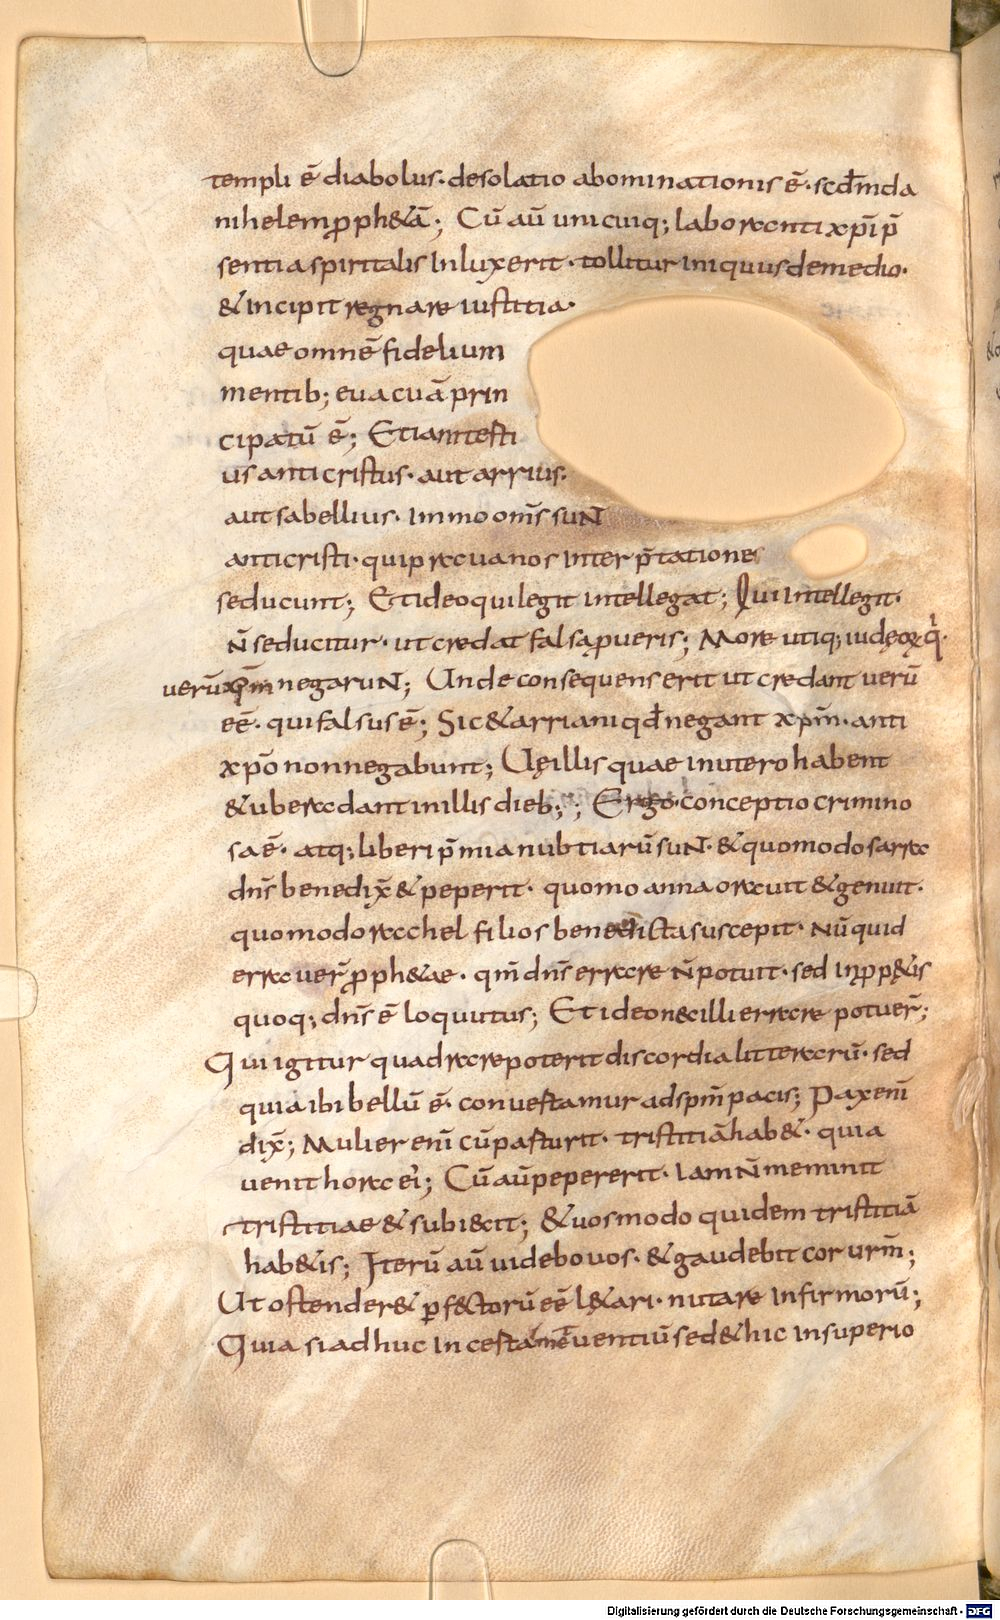 templi ē diabolus· desolatio abominationis ē· scd̄m da
nihelem ꝓph&ā; Cū aū unicuiq; laboranti xp̄i p̄
sentia spiritalis Inluxerit· tollitur iniquus de medio·
& incipit regnare iustitia·
quae omnē fidelium
mentib; euacuā prin
cipatū ē; Etiam testi
us anticristus· aut arrius·
aut sabellius· Immo om̄s suN
anticristi· qui praua nos Inter p̄tationes
seducunt; Et ideo qui legit intellegat; Qui Intellegit·
N̄ seducitur· ut credat falsa ꝓ ueris; More utiq; iudęoꝝ q̇·
uerū xp̄m negaruN; Unde consequens erit ut credant uerū
eē· qui falsus ē; Sic & arriani qd̄ negant xp̄m· anti
xp̄o non negabunt; Uę illis quae in utero habent
& ubera dant in illis dieb;; Ergo· conceptio crimino
sa ē· atq; liberi p̄mia nubtiarū suN· & quomodo sarra
dn̄s benedix̄ & peperit· quomo anna orauit & genuit·
quomodo rachel filios benedicta suscepit· Nū quid
erra uer̄ ꝓph&ae· qm̄ dn̄s errare N̄ potuit· sed In ꝓp&is
quoq; dn̄s ē loquutus; Et ideo nec illi errare potuer̄;
Qui igitur quadrare poterit discordia litterarū· sed
quia ibi bellū ē· conuestamur ad sp̄m pacis; Pax eni̅
dix̄; Mulier eni̅ cū pasturit· tristitiā hab&· quia
uenit hora ei; Cū aū pepererit· Iam N̄ meminit
tristitiae & subiecit; & uos modo quidem tristitiā
hab&is; Iterū aū uidebo uos· & gaudebit cor ur̄m;
Ut ostender& ꝑfectorū eē l&ari· nutare Infirmorū;
Quia si adhuc In certamē uentiū sed & hic In superio
Digitalisierung gefördert durch die Deutsche Forschungsgemeinschaft - DFG